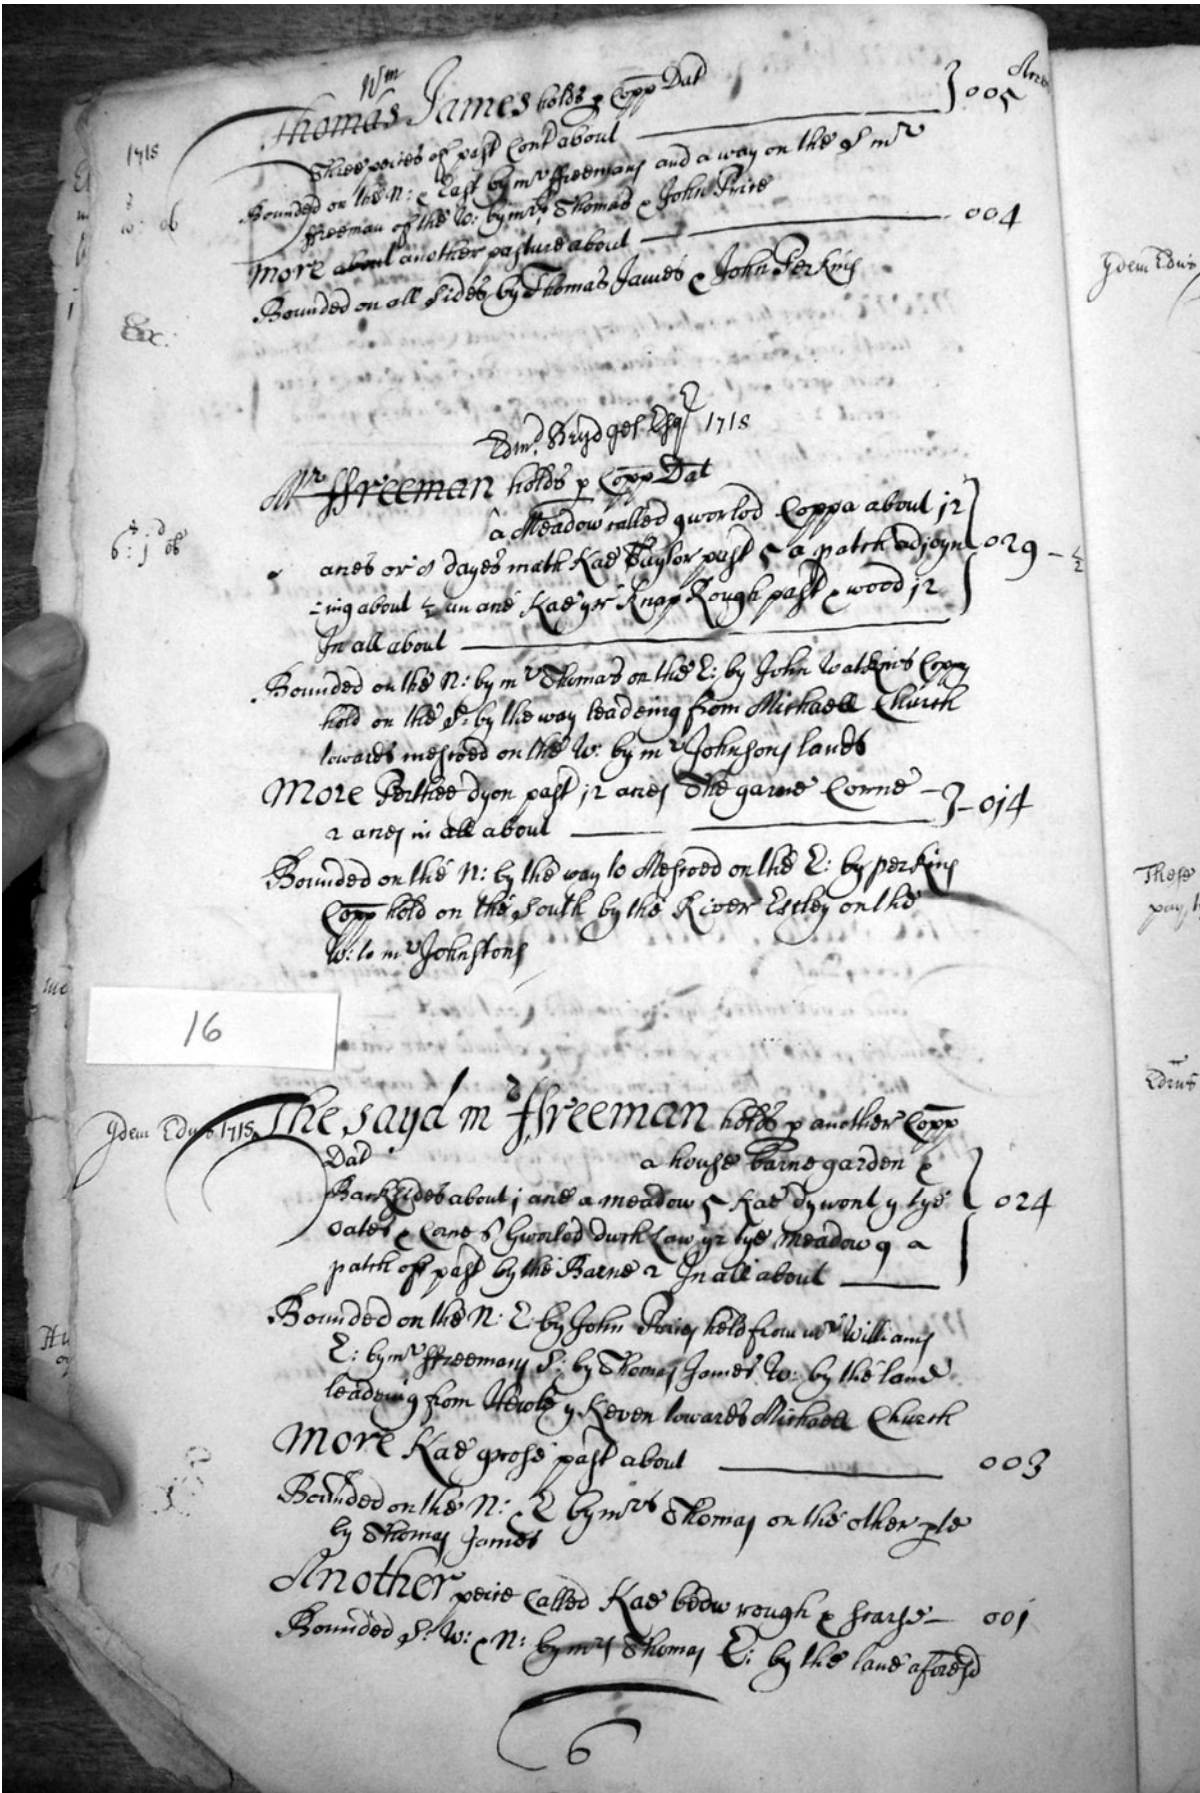 Wm
Acres
Thomas James holds p Copp Dat
1718
Three peices of past Cont about 005
Bounded on the N: & East by mr ffreemans and a way on the S mr
ffreeman of the W: by mrs Thomas & John Price
More about another pasture about 004
Bounded on all Sides by Thomas James & John Perkins
&c:
Edmd. Brydges Esqr 1718
Mr ffreeman holds p Copp Dat
a Meadow called gworlod Coppa about 12
s d
6: j ob
acres or 8 dayes math Kae Taylor past 5 a patch adjoyn 029 - ½
-ing about ½ an acre Kae yr Knap Rough past & wood 12
In all about
Bounded on the N: by mr Thomas on the E: by John Watkins Coppy
hold on the S: by the way leadeing from Michaell Church
towards mescoed on the W: by mr Johnsons lands
More Perthee dyon past 12 acres The garne Corne - 014
2 acres in all about
Bounded on the N: by the way to Mescoed on the E: by Perkins
Copp hold on the South by the River Escley on the
W: to mr Johnstons
16
The sayd mr ffreeman holds p another Copp
Idem Edwus 1715
Dat a house barne garden &
Backsides about j acre a meadow 5 Kae dywont y tye 024
oates & Corne 8 Gworlod duch Law yr tye meadow 9 a
patch of past by the Barne 2 In all about
Bounded on the N: E: by John Prices held from mr Williams
E: by mr ffreemans S: by Thomas James W: by the lane
leadeing from y Keven towards Michaell Church
More Kae grose past about 003
Bounded on the N: & E by mrs Thomas on the other pte
by Thomas James
Another peice Called Kae bedw rough & scarse - 001
Bounded S: W: & N: by mrs Thomas E: by the lane aforesd
6
Idem Edwus
These
pay
Edwus